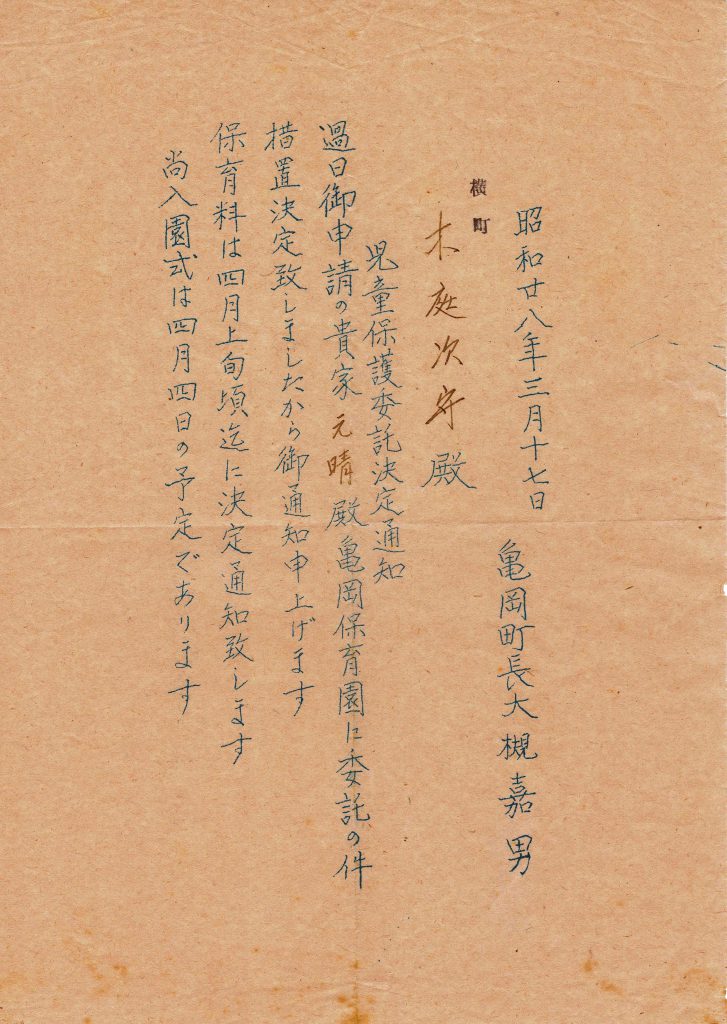 昭和廿八年三月十七日
亀岡町長大槻嘉男
横町
木庭次守殿
児童保護委託決定通知
過日御申請の貴家元晴殿亀岡保育園に委託の件
措置決定致しましたから御通知申上げます
保育料は四月上旬頃迄に決定通知致します
尚入園式は四月四日の予定であります